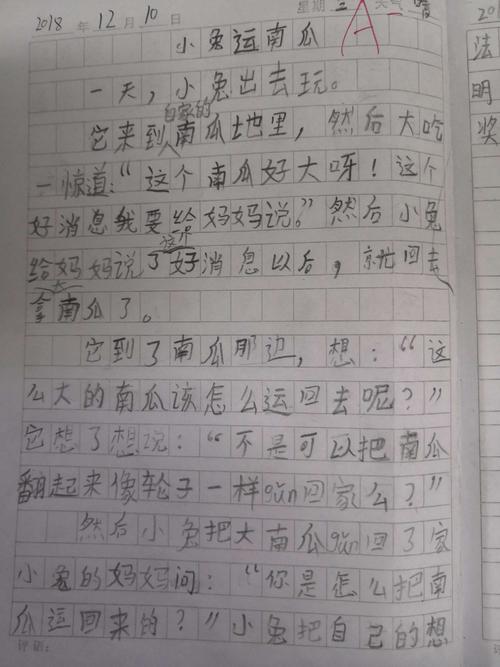 2018年12月10日 星期 三 天气 晴
A-
小兔运南瓜
一天，小兔出去玩。
自家的
它来到南瓜地里，然后大吃
一惊道：“这个南瓜好大呀！这个
好消息我要给妈妈说。”然后小兔
这个
给妈妈说了好消息以后，就回去
拿大南瓜了。
它到了南瓜那边，想：“这
么大的南瓜该怎么运回去呢？”
它想了想说：“不是可以把南瓜
翻起来像轮子一样gǔn回家么？”
然后小兔把大南瓜gǔn回了家
小兔的妈妈问：“你是怎么把南
瓜运回来的？”小兔把自己的想
评语：
20
法
明
奖